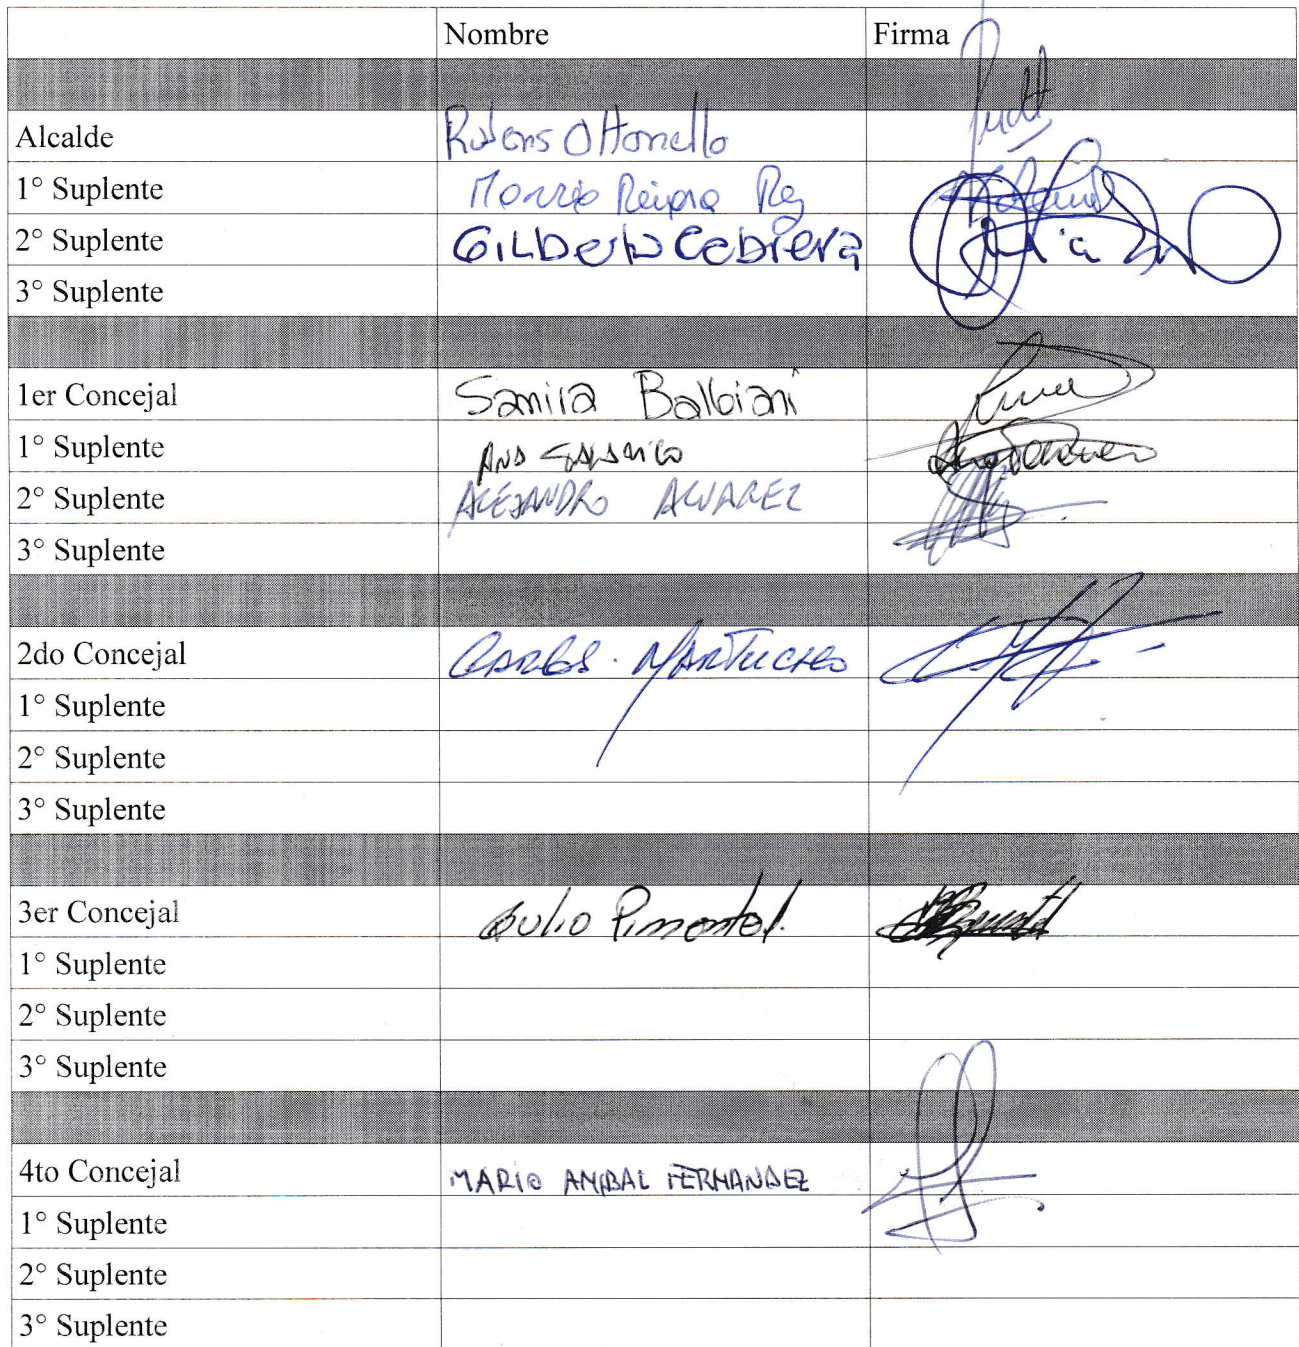 Nombre Firma
Alcalde Rubens Ottonello
1° Suplente
2° Suplente GILberto Cabrera
3° Suplente
1er Concejal Samira Balbiani
1° Suplente ANA
2° Suplente ALEJANDRO ALVAREZ
3° Suplente
2do Concejal CARLOS MARTUCHO
1° Suplente
2° Suplente
3° Suplente
3er Concejal Julio Pimentel.
1° Suplente
2° Suplente
3° Suplente
4to Concejal MARIO ANIBAL FERNANDEZ
1° Suplente
2° Suplente
3° Suplente